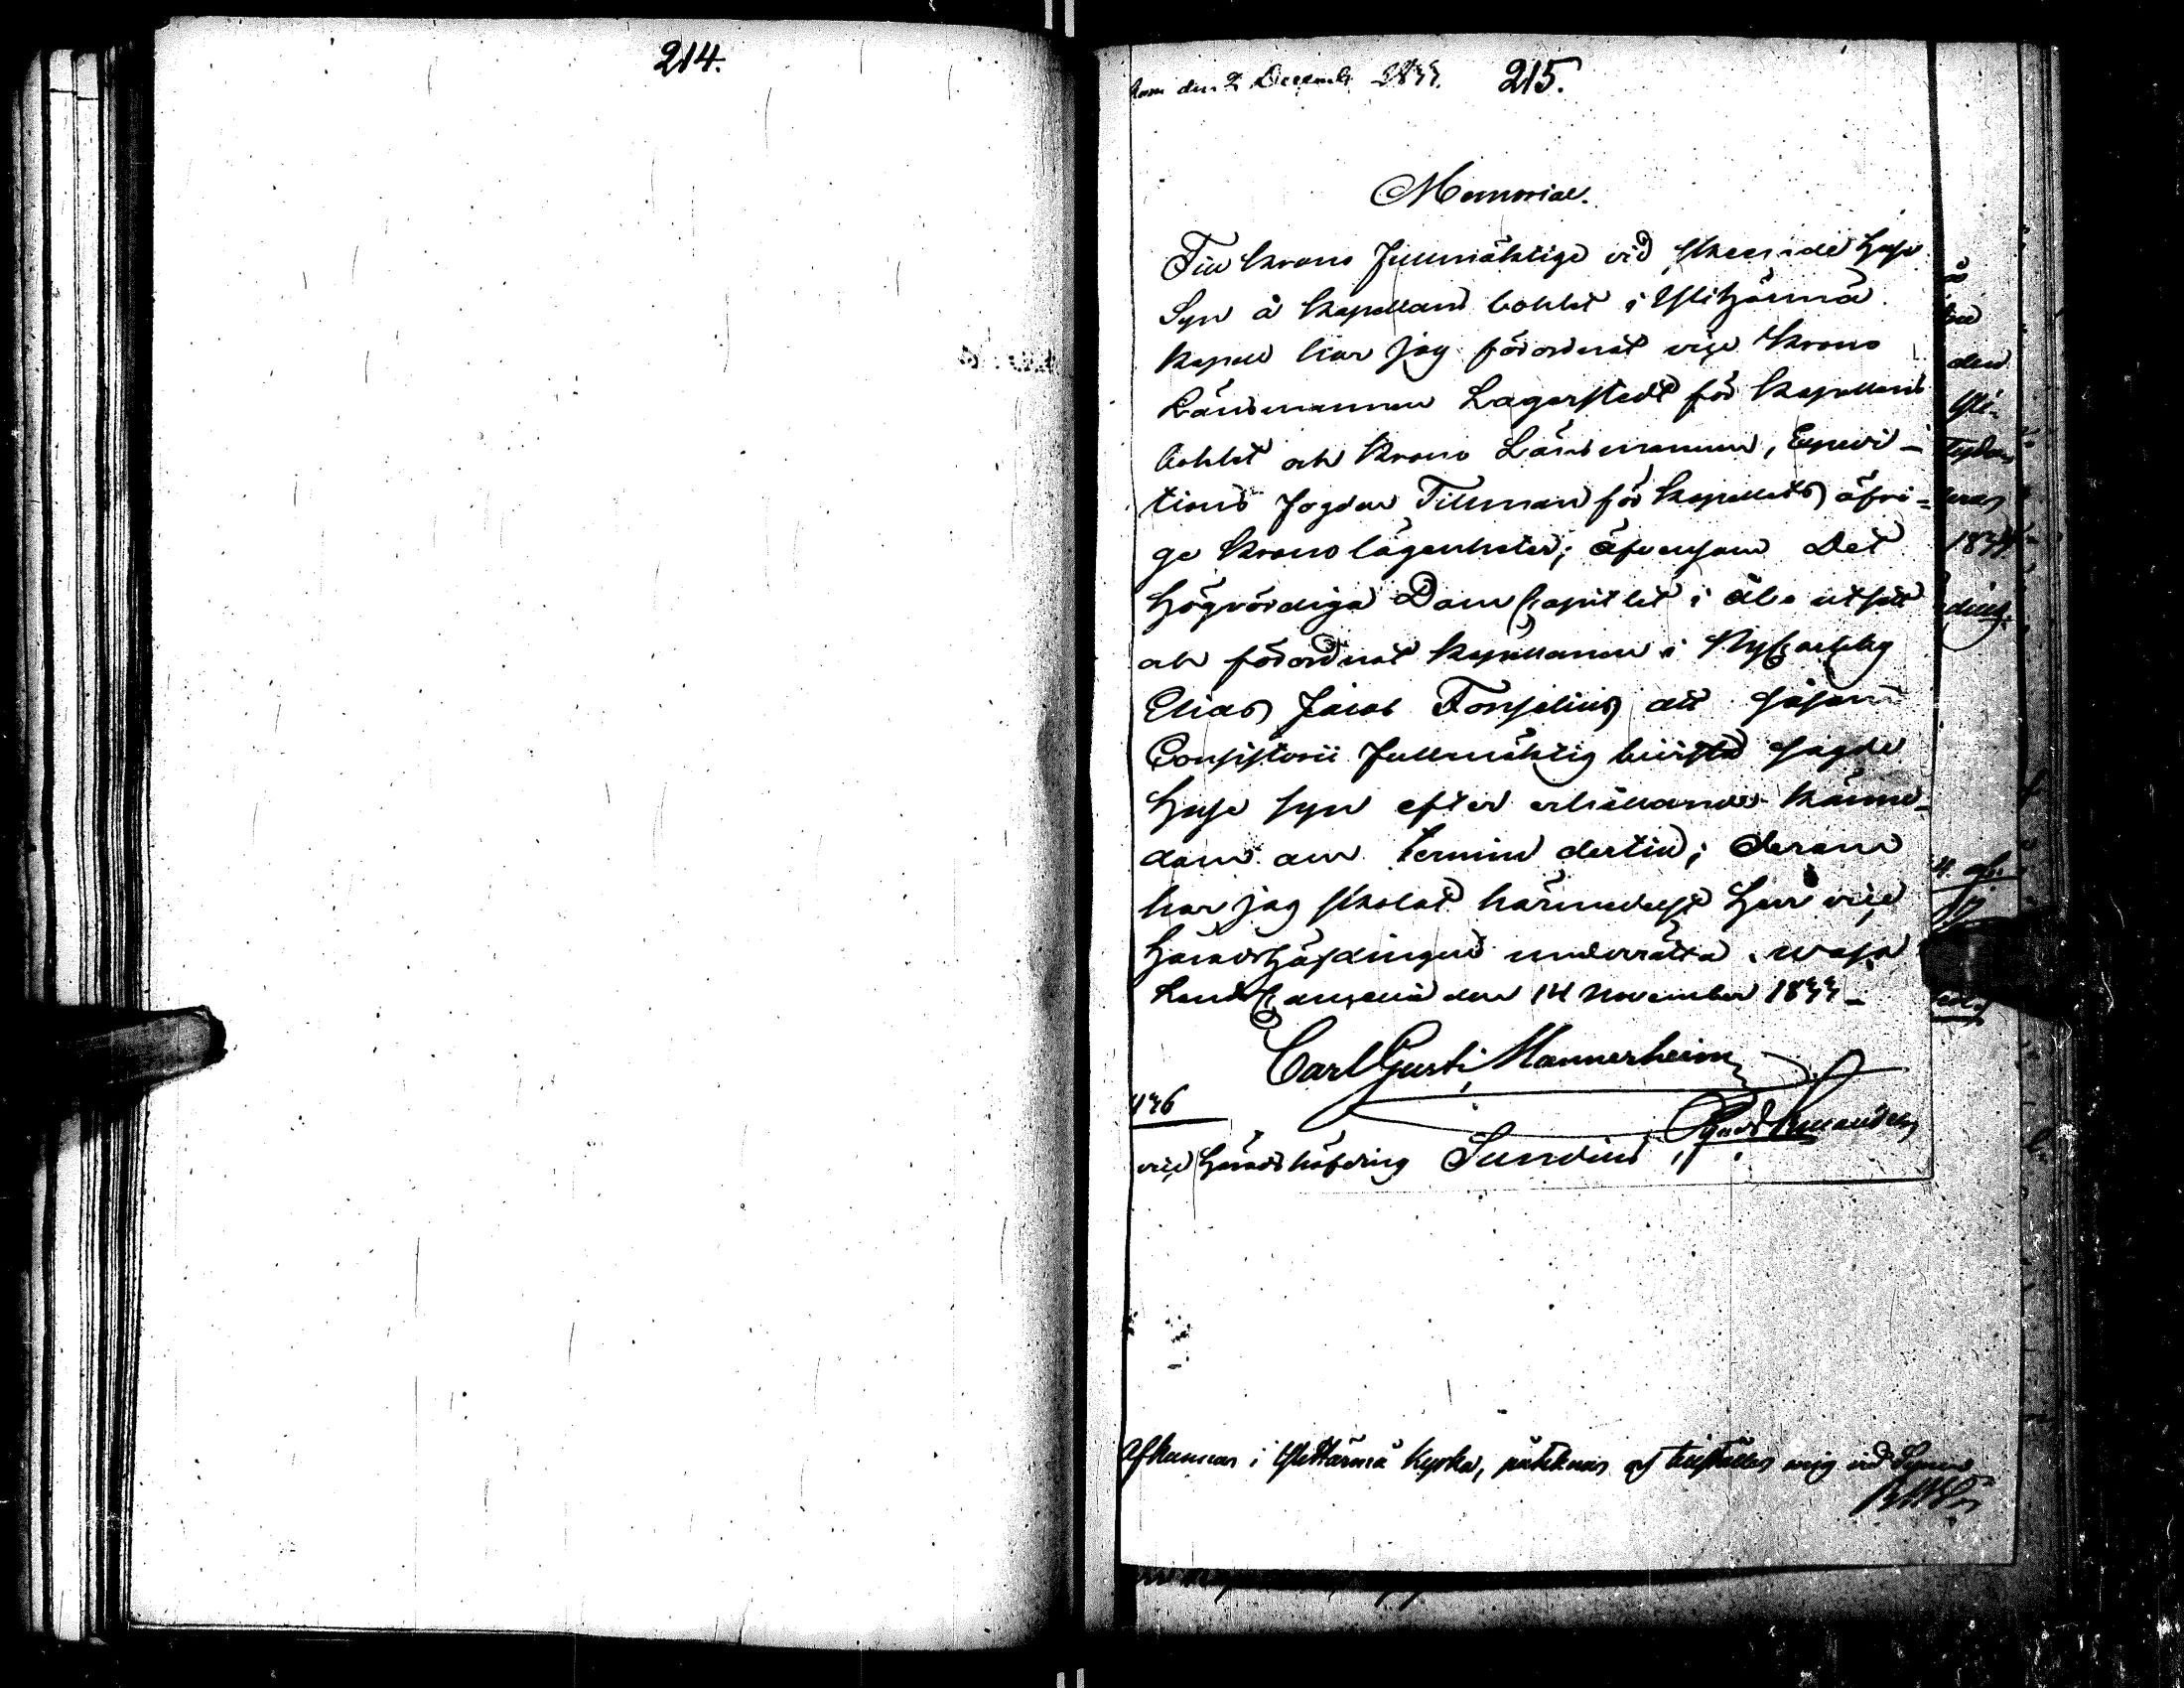 214.
kom den 2 Decemb. 1833.
215.
Memorial.
Till Krono Fullmäktige vid skeende Huse
Syn å Kapellans bohlet i Ylihärmä
Kapell har jag förordnat vice Krono
Länsmannen Lagerstedt för Kapellans
bohlet och Krono Länsmannen, Expedi-
tions Fogden Tillman för Kapellets öfri-
ge Krono lägenheter; äfvensom Det
Högvördiga Dom Capitlet i Åbo utsett
och förordnat Kapellanen i NyCarleby
Elias Jacob Forsselius att såsom
Consistorii Fullmäktig bivista sagde
Huse syn efter erhållande Känne-
dom om termin dertill; derom
har jag skolat härmedelst Herr vice
Häradshöfdingen underrätta. Wasa
Lands Cancellie den 14 November 1833_
Carl Gust. Mannerheim
436
vice Häradshöfding Sundius
å
den
Yli-
1833
Afkunnas i Ylihärmä Kyrka, påteknas och tillställes mig vid Synen